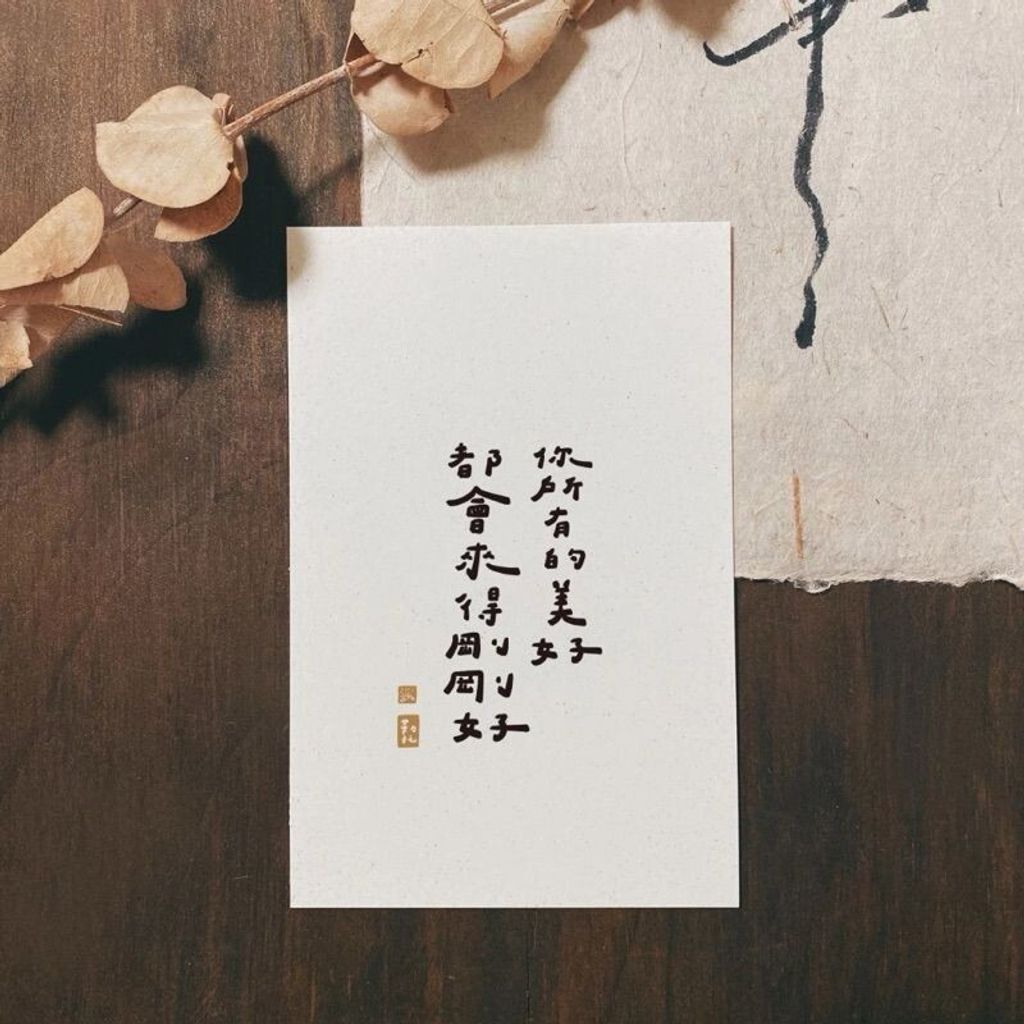 你所有的美好
都會來得剛剛好